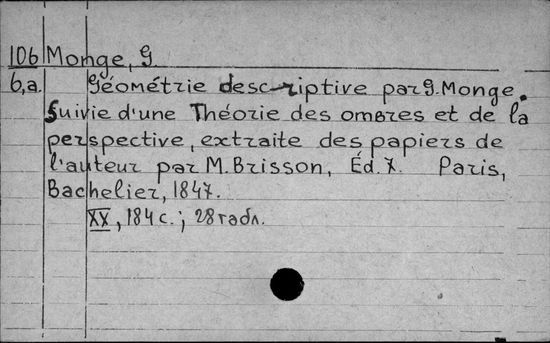 106 Monge, G
6,a. Géométrie descriptive par G. Monge.
Suivie d'une Théorie des ombres et de la
perspective, extraite des papiers de
l'auteur par M. Brisson, Éd. 7. Paris,
Bachelier, 1847.
XX, 184 с.; 28 табл.